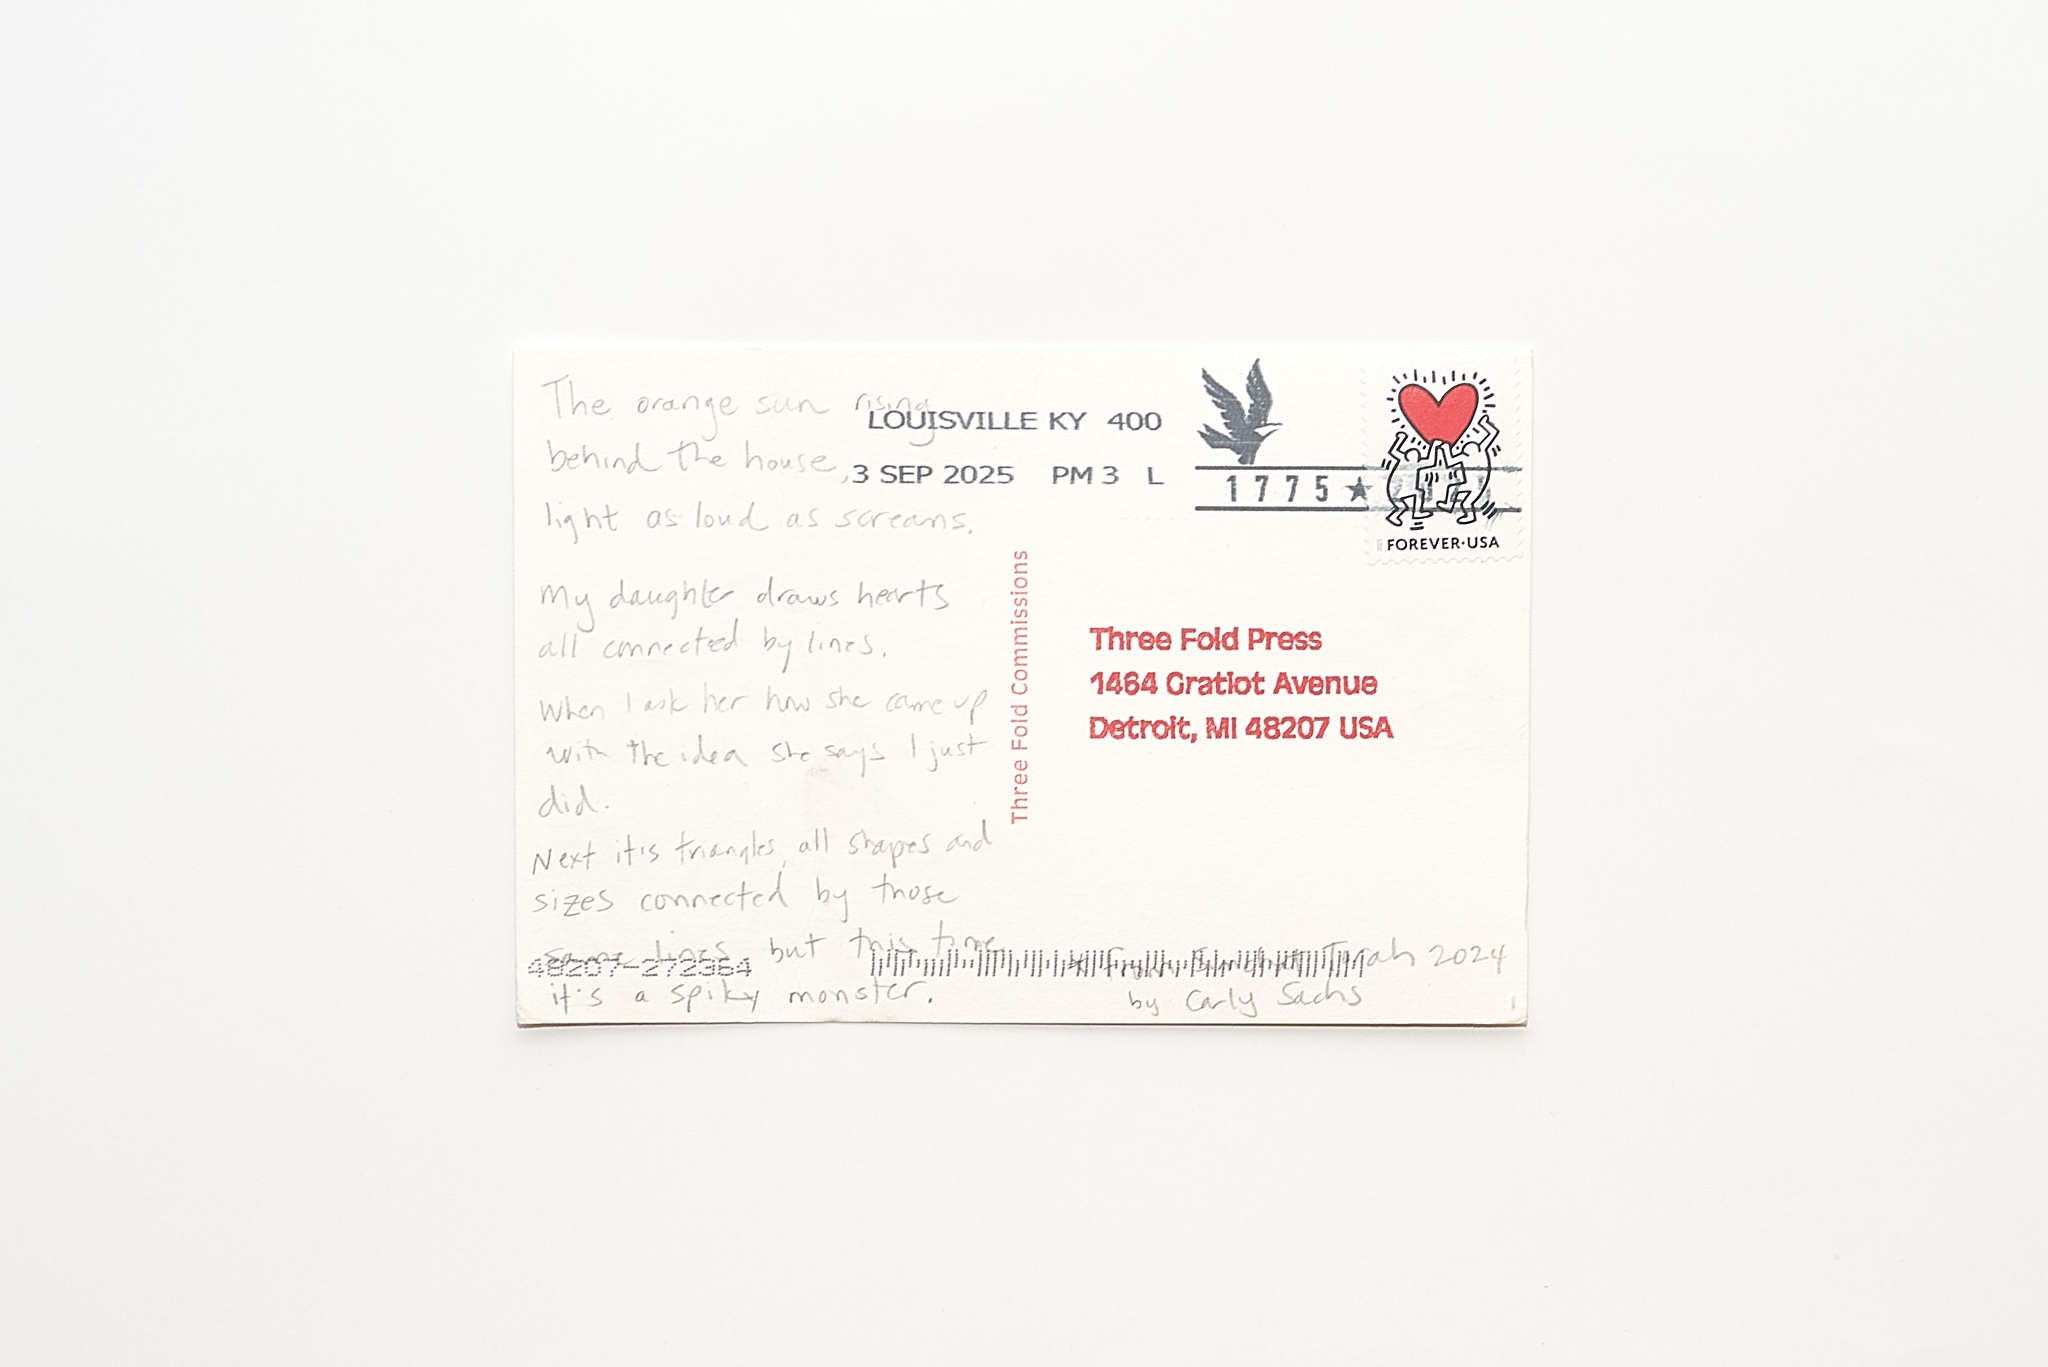 The orange sun rising
behind the house,
light as loud as screams.
My daughter draws hearts
all connected by lines.
When I ask her how she came up
with the idea she says I just
did.
Next it's triangles, all shapes and
sizes connected by those
same lines but this time
it's a spiky monster.
LOUISVILLE KY 400
3 SEP 2025 PM 3 L
1775 ★
FOREVER·USA
Three Fold Commissions
Three Fold Press
1464 Gratiot Avenue
Detroit, MI 48207 USA
48207-272364
* From Simchat Torah 2024
by Carly Sachs